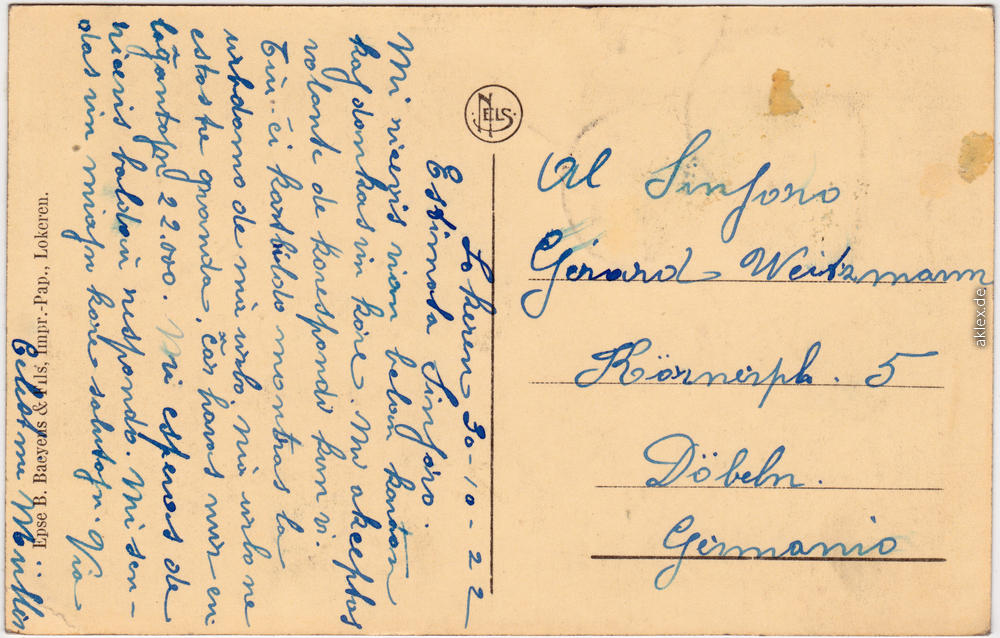 NELS
Lokeren 30-10-22
Estimata Sinjoro.
Mi ricevis vian belan karton
kaj dankas vin kore. Mi akceptos
volante de korespondi kun vi.
Tiu-ĉi kartbildo montras la
urbdomo de mia urbo. nia urbo ne
estas tre granda, ĉar havas nur en
loĝantojn 22.000. Mi esperas de
ricevis baldaŭ respondo. Mi sen-
das vin miajn kore salutojn. Via
Epse B. Baeyens & Fils, Impr.-Pap., Lokeren.
Al Sinjoro
Gérard Weitzmann
Körnerpl. 5
Döbeln.
Germanio
aklex.de